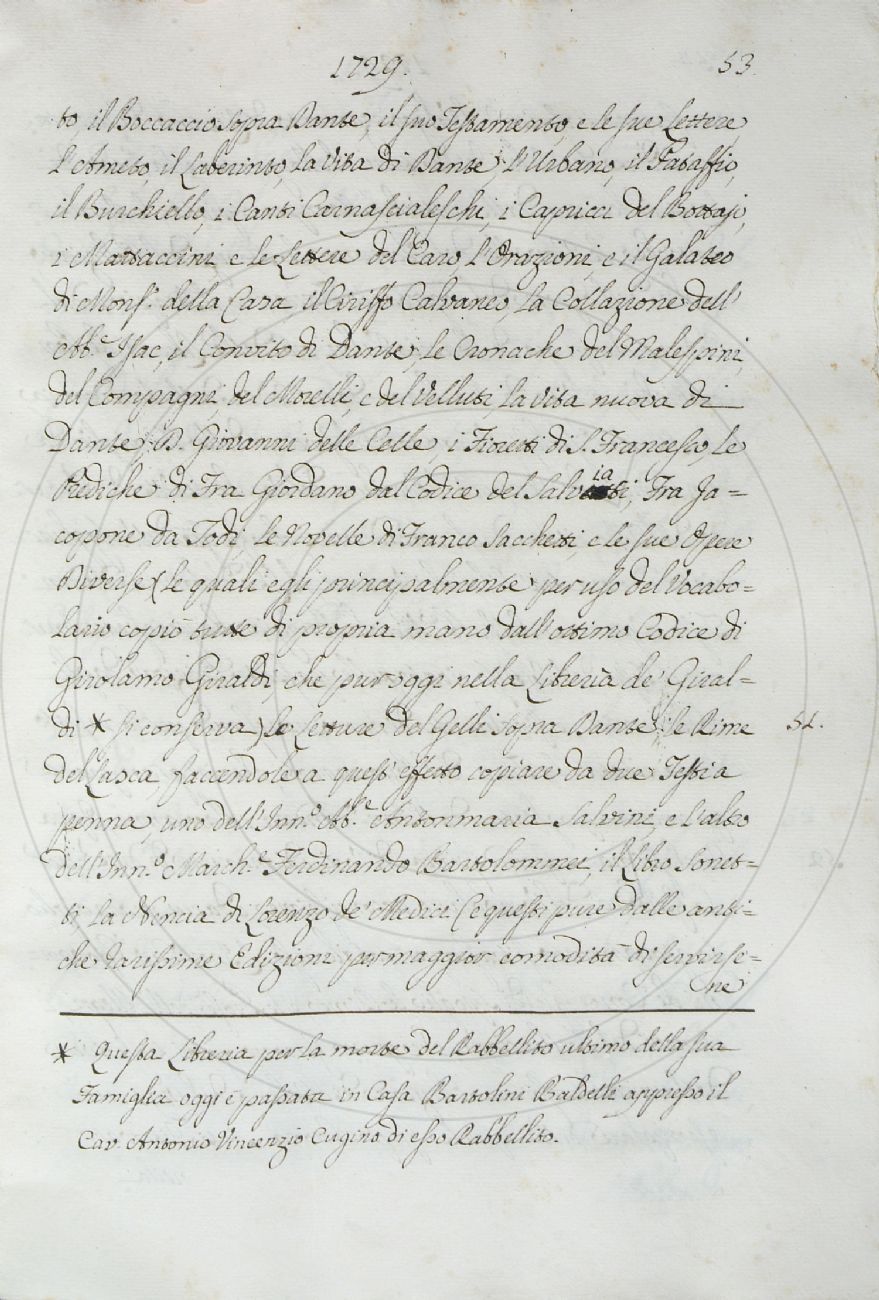 1729.
53
to, il Boccaccio sopra Dante, il suo Testamento, e le sue Lettere
L'Ameto, il Laberinto, la Vita di Dante, l'Urbano, il Pataffio,
il Burchiello, i Canti Carnascialeschi, i Capricci del Bottajo,
i Mattaccini e le Lettere del Caro, l'Orazioni, e il Galateo
di Monsr. della Casa, il Ciriffo Calvaneo, la Collazione dell'
Ab.e Isac, il Convito di Dante, le Cronache del Malespini
del Compagni, del Morelli, e del Velluti, la Vita nuova di
Dante, D. Giovanni delle Celle, i Fioretti di S. Francesco, le
Prediche di Fra Giordano dal Codice del Salviati, Fra Ja=
copone da Todi, le Novelle di Franco Sacchetti e le sue Opere
Diverse (le quali egli principalmente per uso del Vocabo=
lario copiò tutte di propria mano dall'ottimo Codice di
Girolamo Giraldi, che pur oggi nella Libreria de' Giral=
di * si conserva) le Letture del Gelli sopra Dante, le Rime
51.
del Lasca, facendole a quest'effetto copiare da due Testi a
penna, uno dell'Inn.o Ab.e Antonmaria Salvini, e l'altro
dell'Inn.o March.e Ferdinando Bartolommei, il Libro Sonet=
ti la Nencia di Lorenzo de' Medici (e questi pure dalle anti=
che rarissime Edizioni per maggior comodità di servirse=
ne
* Questa Libreria per la morte del Rabbellito ultimo della sua
Famiglia oggi è passata in Casa Bartolini Baldelli appresso il
Cav. Antonio Vincenzio Cugino di esso Rabbellito.